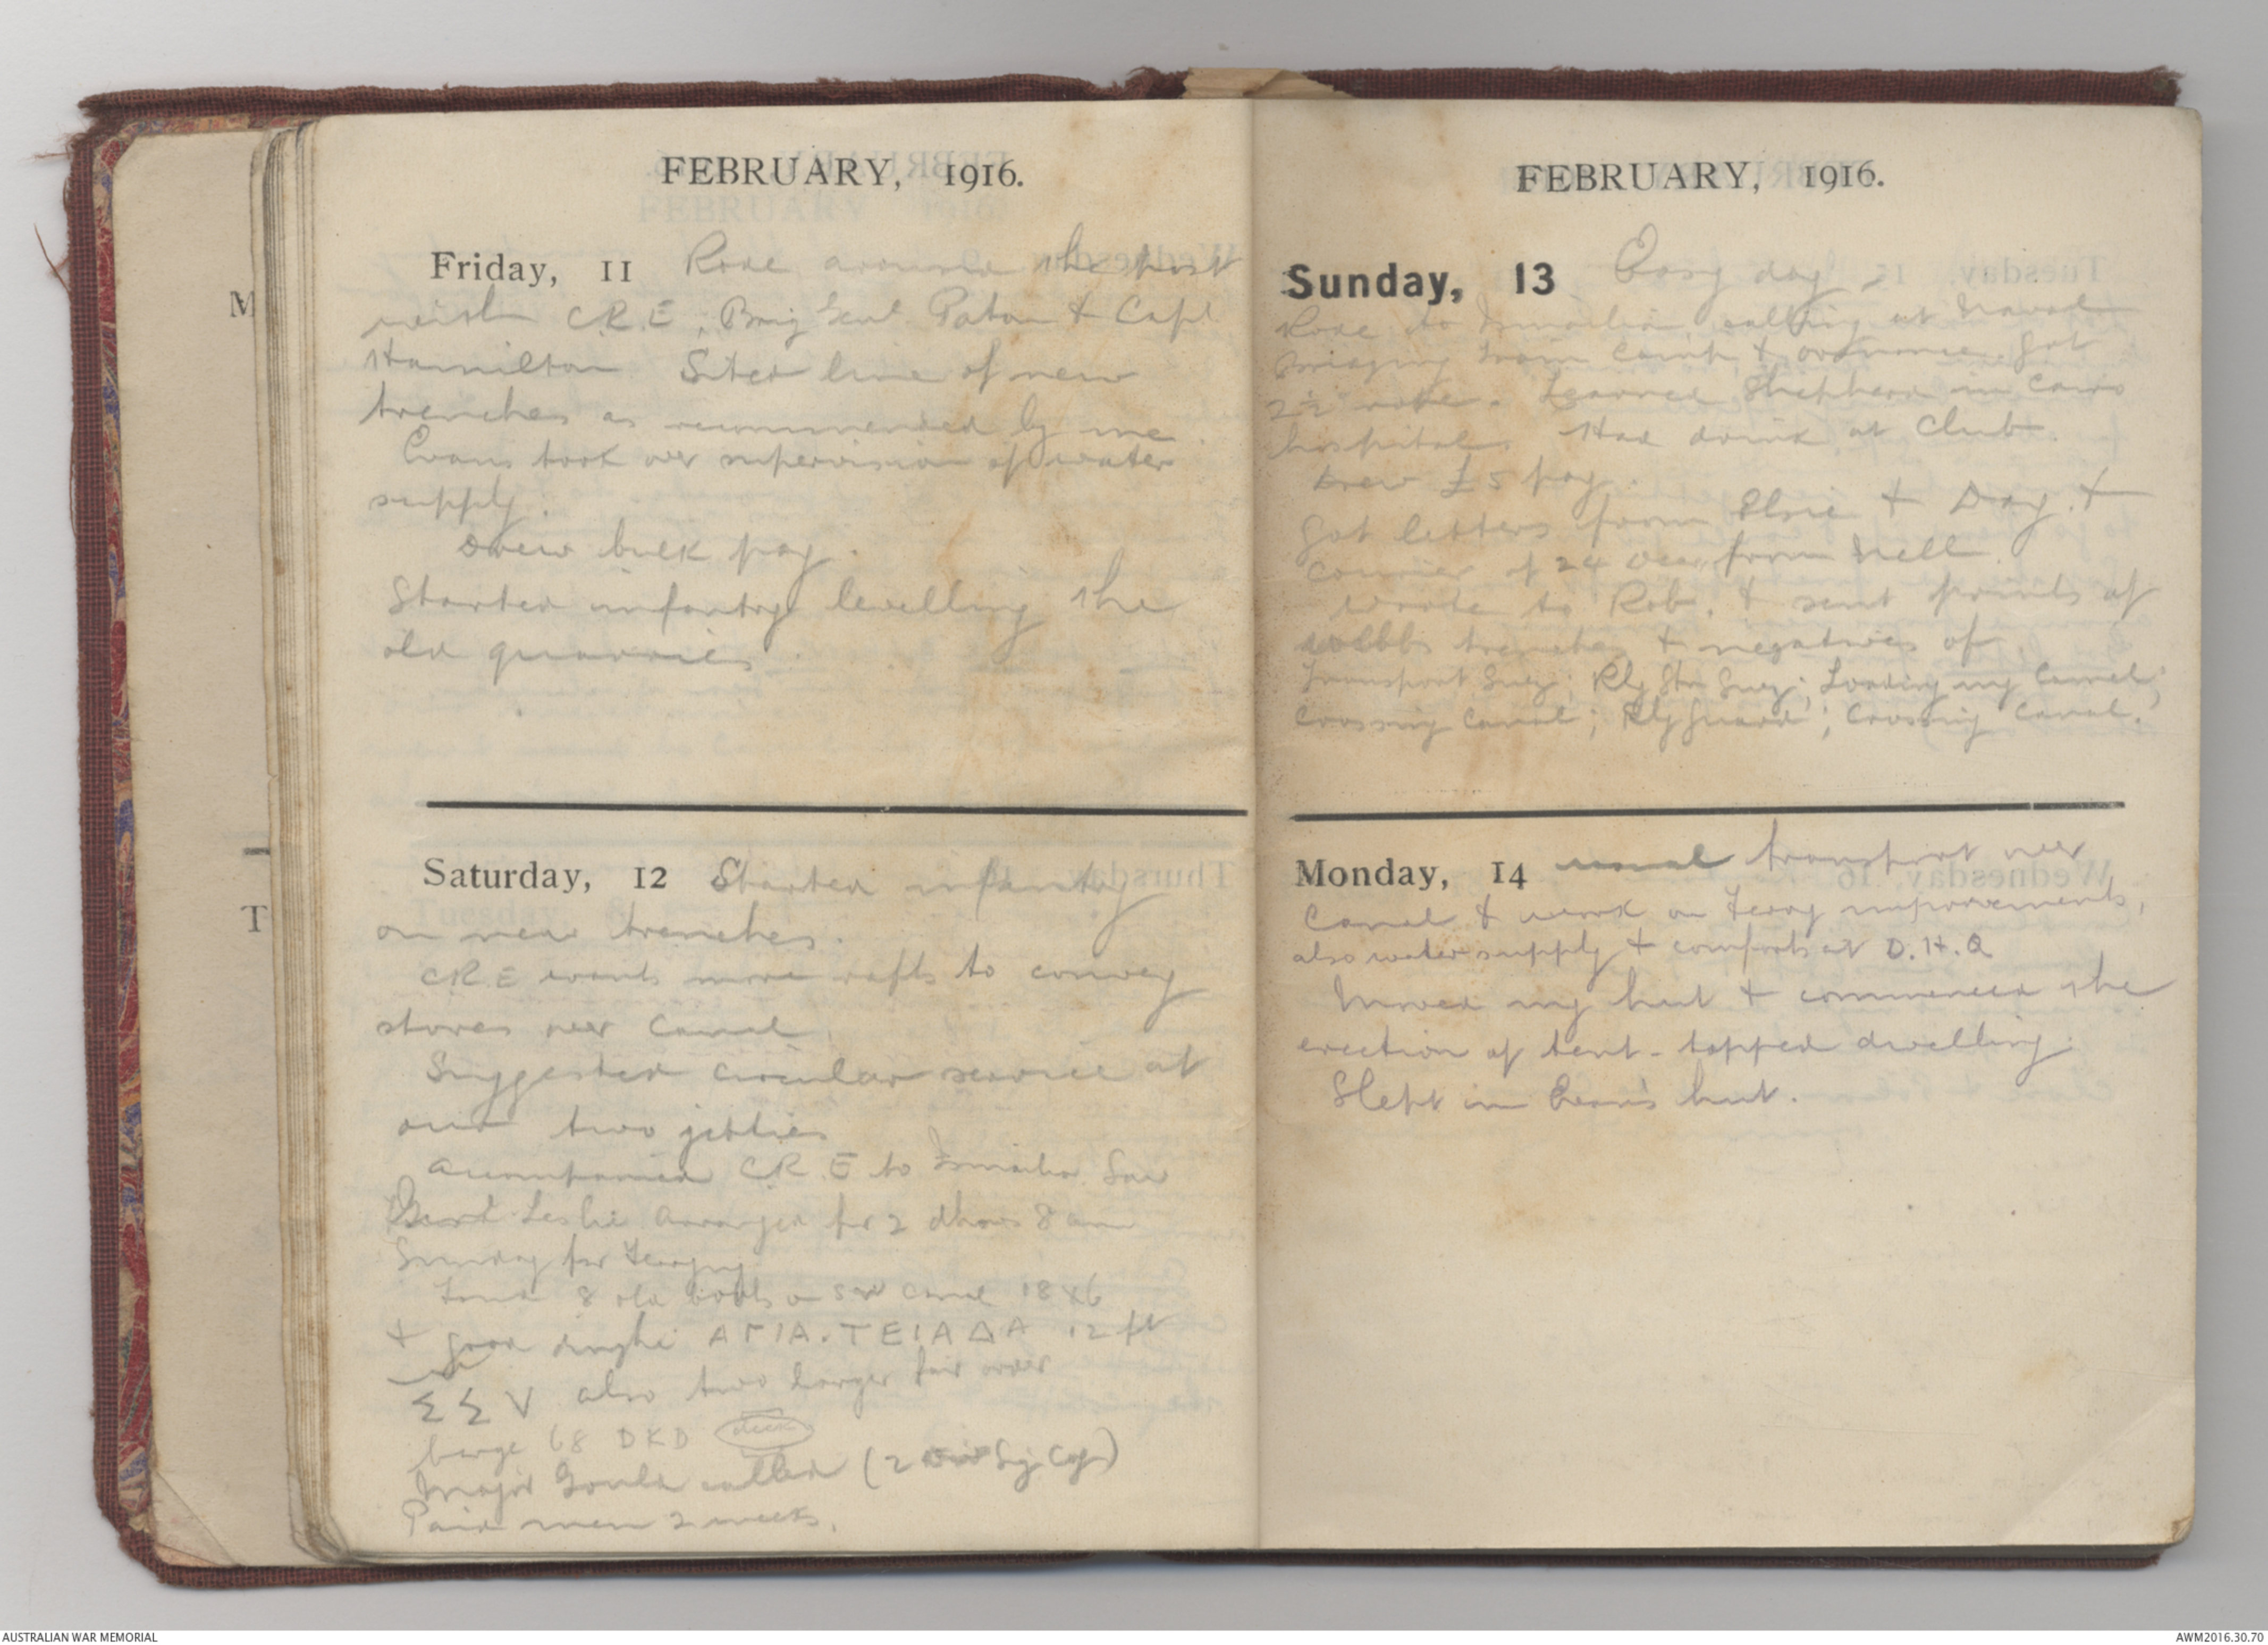 FEBRUARY, 1916.
Friday, 11 Rode around the post
with C.R.E; Brig Genl Paton & Capt
Hamilton. Sited line of new
trenches as recommended by me.
Evans took over supervision of water
supply.
Drew bulk pay.
Started infantry levelling the
old quarries.
Saturday, 12 Started infantry
on new trenches.
CRE wants more rafts to convey
stores over Canal
Suggested circular service at
our two jetties
Accompanied C.R.E to Ismailia Saw
Genl Leslie Arranged for 2 dhows 8 am
Sunday for ferrying
Found 8 old boats on SW Canal 18 x 6
+ good dinghi ΑΓΙΑ.ΤΕΙΑΔΑ 12 ft
Σ Σ V also two larger fair order
barge 68 DKD
Major Gould called (2 Div Sig Coy)
Paid men 2 weeks.
FEBRUARY, 1916.
Sunday, 13 Easy day -
Rode to Ismailia calling at Naval
Bridging Train Camp & ordnance. Got
2½" rope. Learned Shepherd in Cairo
hospital. Had drink at Club.
Drew £5 pay.
Got letters from Elsie + Day. +
Courier of 24 Dec from Nell.
Wrote to Rob. & sent prints of
trenches + negatives of
Transport Suez; Rly Stn Suez; Loading my Camel;
Crossing Canal; Rly Guard; Crossing Canal.
Monday, 14 usual transport over
Canal & work on ferry improvements,
also water supply + comforts at D.H.Q
Moved my hut + commenced the
erection of tent-topped dwelling.
Slept in Evan's hut.
M
T
AUSTRALIAN WAR MEMORIAL
AWM2016.30.70